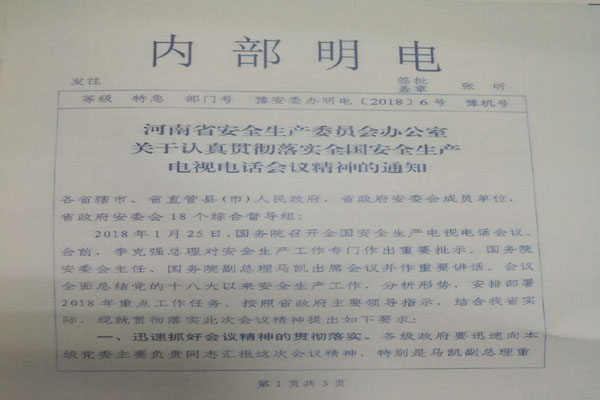 内部明电
发往 签批盖章 张昕
等级 特急 部门号 豫安委办明电〔2018〕6号 豫机号
河南省安全生产委员会办公室
关于认真贯彻落实全国安全生产
电视电话会议精神的通知
各省辖市、省直管县(市)人民政府,省政府安委会成员单位,
省政府安委会18个综合督导组:
2018年1月25日,国务院召开全国安全生产电视电话会议。
会前,李克强总理对安全生产工作专门作出重要批示。国务院
安委会主任、国务院副总理马凯出席会议并作重要讲话。会议
全面总结党的十八大以来安全生产工作,分析形势,安排部署
2018年重点工作任务。按照省政府主要领导指示,结合我省实
际,现就贯彻落实此次会议精神提出如下要求:
一、迅速抓好会议精神的贯彻落实。各级政府要迅速向本
级党委主要负责同志汇报这次会议精神,特别是马凯副总理重
第1页共3页